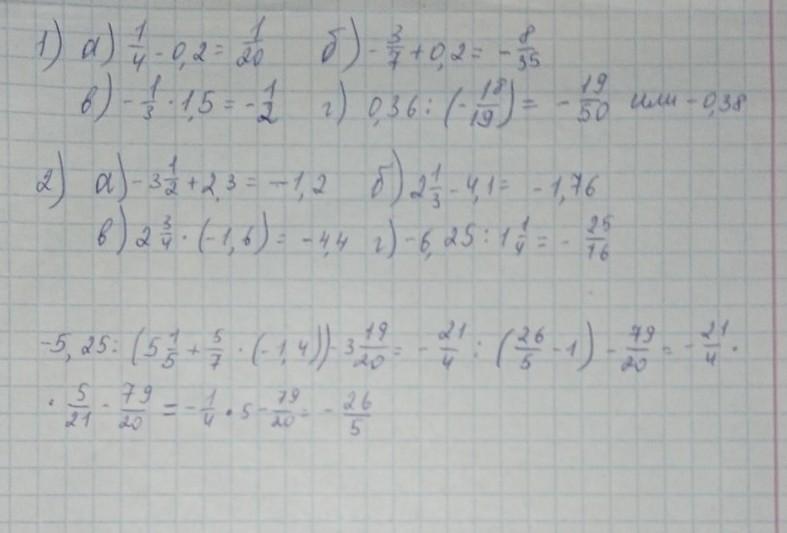 1) а) 1/4 - 0,2 = 1/20 б) - 3/7 + 0,2 = - 8/35
в) - 1/3 · 1,5 = - 1/2 г) 0,36 : (- 18/19) = - 19/50 или - 0,38
2) а) - 3 1/2 + 2,3 = - 1,2 б) 2 1/3 - 4,1 = - 1,76
в) 2 3/4 · (-1,6) = - 4,4 г) - 6,25 : 1 1/4 = - 25/16
-5,25 : (5 1/5 + 5/7 · (-1,4)) - 3 19/20 = - 21/4 : (26/5 - 1) - 79/20 = - 21/4 ·
· 5/21 - 79/20 = - 1/4 · 5 - 79/20 = - 26/5